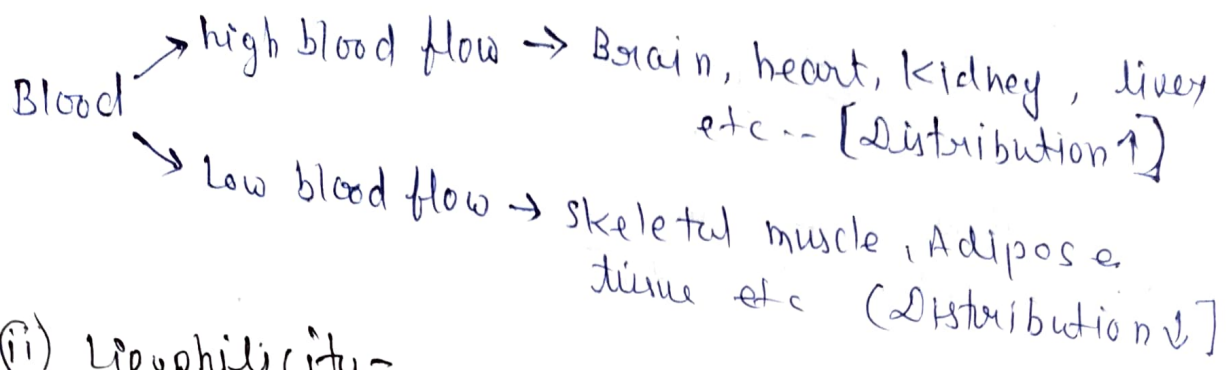 high blood flow → Brain, heart, Kidney, liver
Blood
etc -- [Distribution ↑]
Low blood flow → skeletal muscle, Adipose
tissue etc (Distribution ↓]
(ii) Lipophilicity -